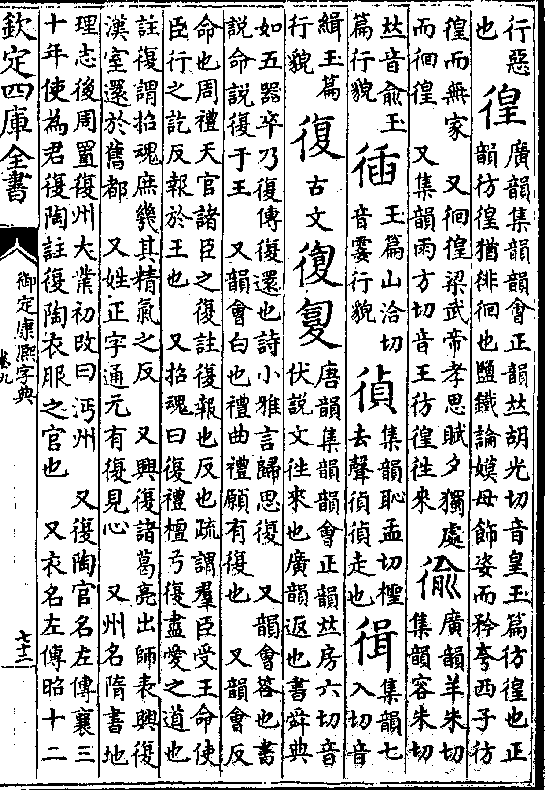 行惡
也
徨
廣韻集韻韻會正韻𠀤胡光切音皇玉篇彷徨也正
韻彷徨猶徘徊也鹽鐵論嫫母飾姿而矜夸西子彷
徨而無家　又徊徨梁武帝孝思賦夕獨處
而徊徨　又集韻雨方切音王彷徨徃來
𢔢
廣韻羊朱切
集韻容朱切
𠀤音俞玉
篇行貌
𢔣
玉篇山洽切
音霎行貌
偵
集韻恥孟切檉
去聲偵偵走也
㣬
集韻七
入切音
緝玉篇
行貌
復
古文
𢕛
㚆
唐韻集韻韻會正韻𠀤房六切音
伏説文徃來也廣韻返也書舜典
如五器卒乃復傳復還也詩小雅言歸思復　又韻會答也書
説命説復于王　又韻會白也禮曲禮願有復也　又韻會反
命也周禮天官諸臣之復註復報也反也疏謂羣臣受王命使
臣行之訖反報於王也　又招魂曰復禮檀弓復盡愛之道也
註復謂招魂庶幾其精氣之反　又興復諸葛亮出師表興復
漢室還於舊都　又姓正字通元有復見心　又州名隋書地
理志後周置復州大業初改曰沔州　又復陶官名左傳襄三
十年使為君復陶註復陶衣服之官也　又衣名左傳昭十二
欽定四庫全書
御定康熙字典
卷九
七十二